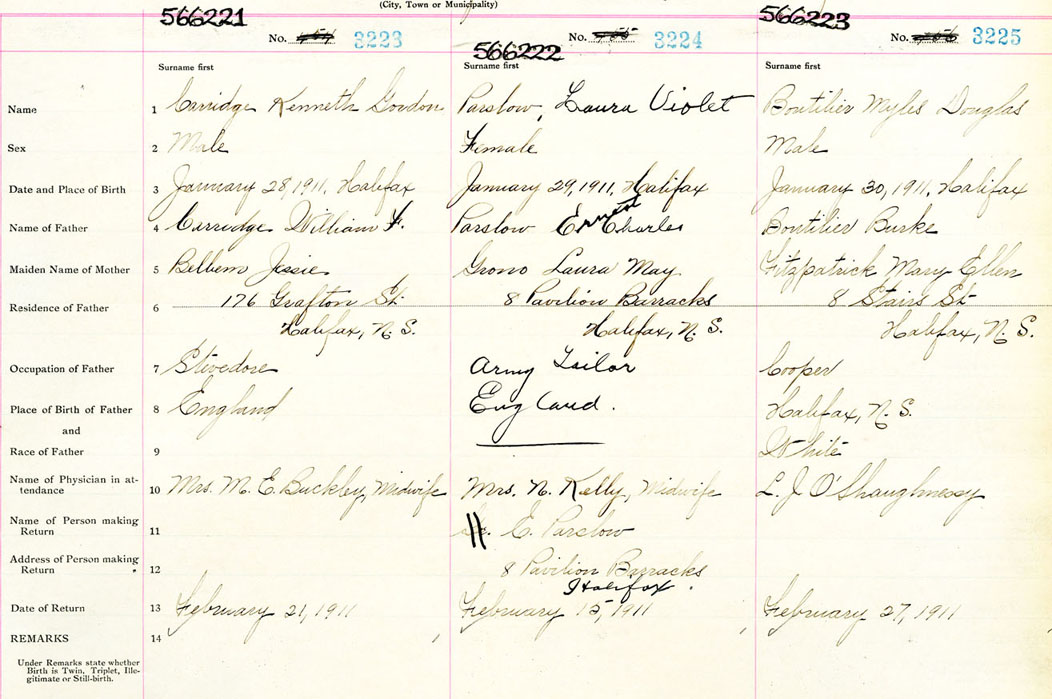 (City, Town or Municipality)
566221 566222 566223
No. 3223 No. 3224 No. 3225
Surname first Surname first Surname first
Name 1 Kenneth Gordon Parslow, Laura Violet Boutilier Myles Douglas
Sex 2 Male Female Male
Date and Place of Birth 3 January 28, 1911, Halifax January 29, 1911, Halifax January 30, 1911, Halifax
Name of Father 4 William F. Parslow Ernest Charles Boutilier Burke
Maiden Name of Mother 5 Jessie Grono Laura May Fitzpatrick Mary Ellen
Residence of Father 6 176 Grafton St. 8 Pavilion Barracks 8 Stairs St.
Halifax, N. S. Halifax, N. S. Halifax, N. S.
Occupation of Father 7 Stevedore Army Tailor Cooper
Place of Birth of Father 8 England England. Halifax, N. S.
and
Race of Father 9 White
Name of Physician in at-
tendance 10 Mrs. M. E. Buckley, Midwife Mrs. N. Kelly, Midwife L. J. O'Shaughnessy
Name of Person making
Return 11 E. Parslow
Address of Person making
Return 12 8 Pavilion Barracks
Halifax.
Date of Return 13 February 21, 1911 February 15, 1911 February 27, 1911
REMARKS 14
Under Remarks state whether
Birth is Twin, Triplet, Ille-
gitimate or Still-birth.